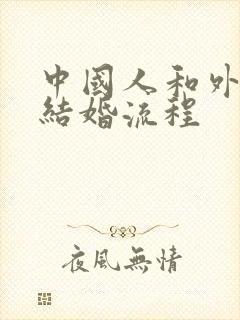 中國人和外
結婚流程
夜風無情